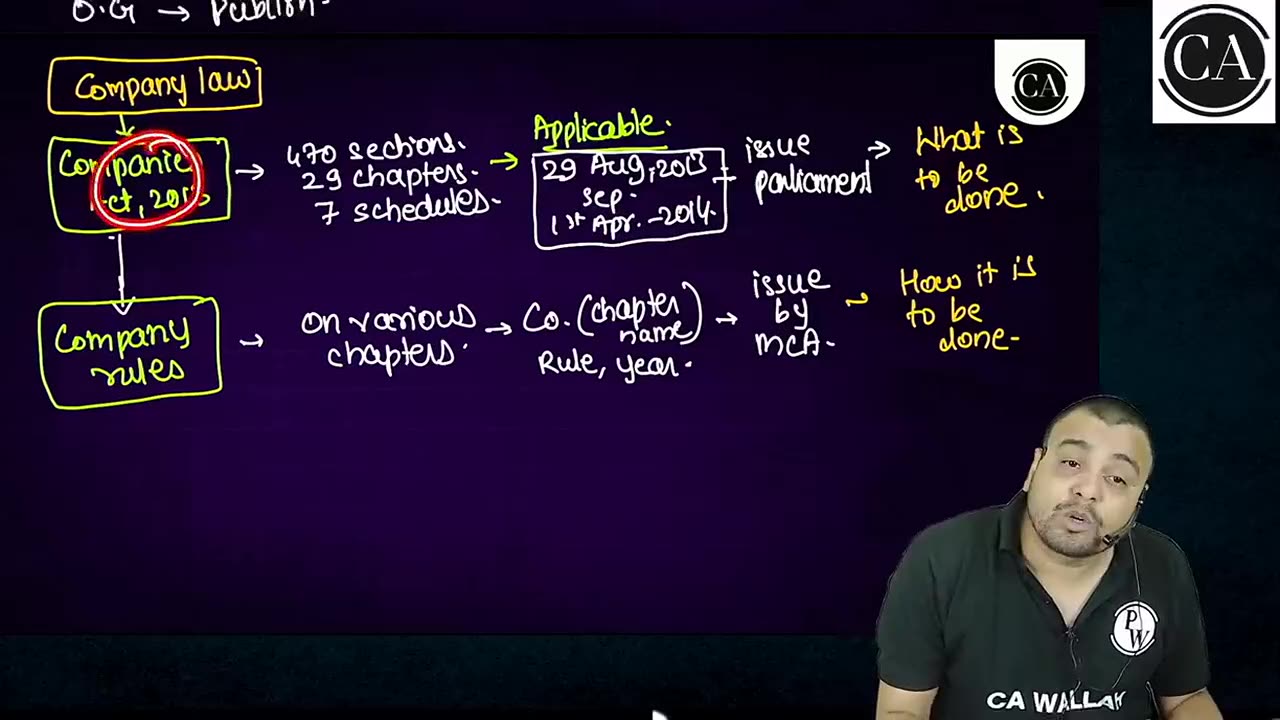 O.G → Publish.
Company law
Companies
Act, 2013
→ 470 sections.
29 chapters.
7 schedules.
→ Applicable.
29 Aug, 2013
sep.
1st Apr. - 2014.
→ issue
parliament
→ What is
to be
done.
Company
rules
→ on various
chapters.
→ Co. (chapter
name)
Rule, year.
→ issue
by
MCA.
→ How it is
to be
done-
CA
CA
PW
CA WALLAH